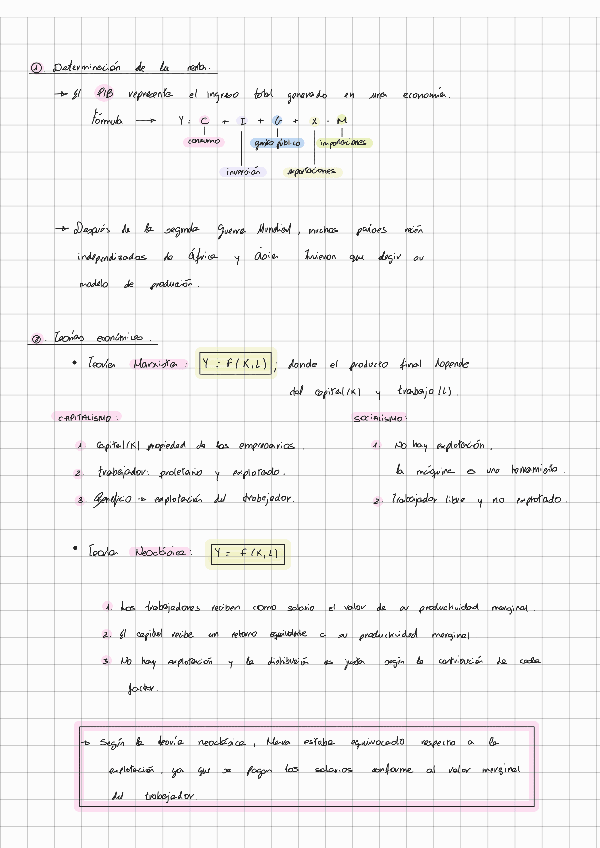 ① Determinación de la renta.
→ El PIB representa el ingreso total generado en una economía.
Fórmula → Y = C + I + G + X - M
consumo gasto público importaciones
inversión exportaciones
→ Después de la segunda Guerra Mundial, muchos países recién
independizados de África y Asia tuvieron que elegir su
modelo de producción.
② Teorías económicas.
• Teoría Marxista: Y = f(K,L); donde el producto final depende
del capital(K) y trabajo(L).
CAPITALISMO: SOCIALISMO:
1. Capital(K) propiedad de los empresarios. 1. No hay explotación.
la máquina es una herramienta.
2. trabajador: proletario y explotado.
3. Beneficio → explotación del trabajador. 2. Trabajador libre y no explotado.
• Teoría Neoclásica: Y = f(K,L)
1. Los trabajadores reciben como salario el valor de su productividad marginal.
2. El capital recibe un retorno equivalente a su productividad marginal
3. No hay explotación y la distribución es justa según la contribución de cada
factor.
→ Según la teoría neoclásica, Marx estaba equivocado respecto a la
explotación, ya que se pagan los salarios conforme al valor marginal
del trabajador.